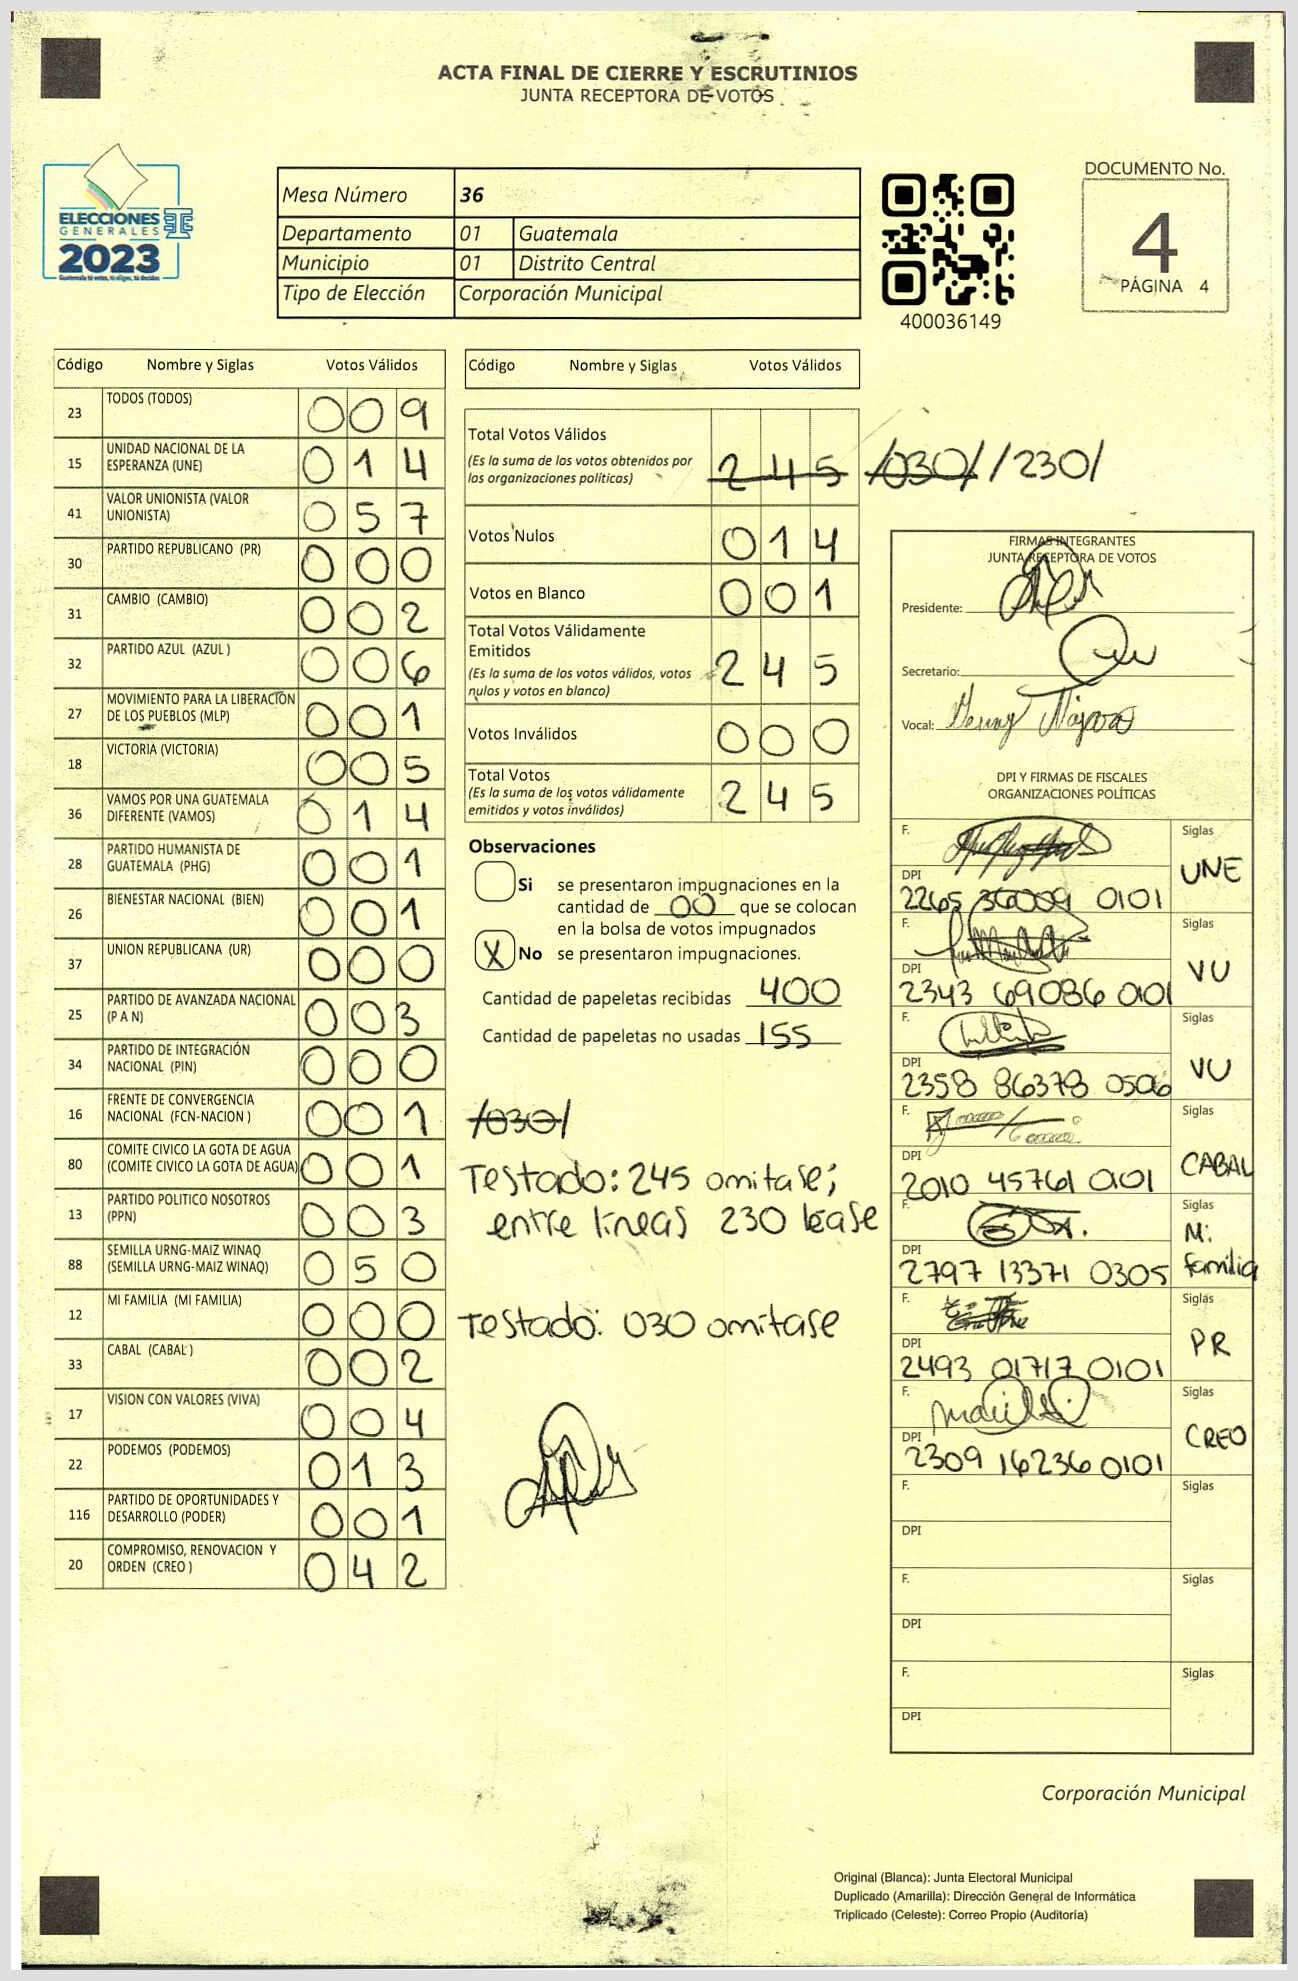 ACTA FINAL DE CIERRE Y ESCRUTINIOS
JUNTA RECEPTORA DE VOTOS
ELECCIONES
GENERALES
2023
Guatemala tú votas, tú eliges, tú decides
Mesa Número 36
Departamento 01 Guatemala
Municipio 01 Distrito Central
Tipo de Elección Corporación Municipal
400036149
DOCUMENTO No.
4
PÁGINA 4
Código Nombre y Siglas Votos Válidos
23 TODOS (TODOS) 009
15 UNIDAD NACIONAL DE LA
ESPERANZA (UNE) 014
41 VALOR UNIONISTA (VALOR
UNIONISTA) 057
30 PARTIDO REPUBLICANO (PR) 000
31 CAMBIO (CAMBIO) 002
32 PARTIDO AZUL (AZUL ) 006
27 MOVIMIENTO PARA LA LIBERACIÓN
DE LOS PUEBLOS (MLP) 001
18 VICTORIA (VICTORIA) 005
36 VAMOS POR UNA GUATEMALA
DIFERENTE (VAMOS) 014
28 PARTIDO HUMANISTA DE
GUATEMALA (PHG) 001
26 BIENESTAR NACIONAL (BIEN) 001
37 UNION REPUBLICANA (UR) 000
25 PARTIDO DE AVANZADA NACIONAL
(P A N) 003
34 PARTIDO DE INTEGRACIÓN
NACIONAL (PIN) 000
16 FRENTE DE CONVERGENCIA
NACIONAL (FCN-NACION ) 001
80 COMITE CIVICO LA GOTA DE AGUA
(COMITE CIVICO LA GOTA DE AGUA) 001
13 PARTIDO POLITICO NOSOTROS
(PPN) 003
88 SEMILLA URNG-MAIZ WINAQ
(SEMILLA URNG-MAIZ WINAQ) 050
12 MI FAMILIA (MI FAMILIA) 000
33 CABAL (CABAL ) 002
17 VISION CON VALORES (VIVA) 004
22 PODEMOS (PODEMOS) 013
116 PARTIDO DE OPORTUNIDADES Y
DESARROLLO (PODER) 001
20 COMPROMISO, RENOVACION Y
ORDEN (CREO ) 042
Código Nombre y Siglas Votos Válidos
Total Votos Válidos
(Es la suma de los votos obtenidos por
las organizaciones políticas) 245 /030/ /230/
Votos Nulos 014
Votos en Blanco 001
Total Votos Válidamente
Emitidos
(Es la suma de los votos válidos, votos
nulos y votos en blanco) 245
Votos Inválidos 000
Total Votos
(Es la suma de los votos válidamente
emitidos y votos inválidos) 245
Observaciones
Si se presentaron impugnaciones en la
cantidad de 00 que se colocan
en la bolsa de votos impugnados
X No se presentaron impugnaciones.
Cantidad de papeletas recibidas 400
Cantidad de papeletas no usadas 155
/030/
Testado: 245 omitase;
entre líneas 230 léase
Testado: 030 omitase
FIRMAS INTEGRANTES
JUNTA RECEPTORA DE VOTOS
Presidente:
Secretario:
Vocal:
DPI Y FIRMAS DE FISCALES
ORGANIZACIONES POLÍTICAS
F. Siglas
UNE
DPI
2265 36009 0101
F. Siglas
VU
DPI
2343 69086 0101
F. Siglas
VU
DPI
2358 86378 0506
F. Siglas
CABAL
DPI
2010 45761 0101
F. Siglas
Mi
familia
DPI
2797 13371 0305
F. Siglas
PR
DPI
2493 01717 0101
F. Siglas
CREO
DPI
2309 16236 0101
F. Siglas
DPI
F. Siglas
DPI
F. Siglas
DPI
Corporación Municipal
Original (Blanca): Junta Electoral Municipal
Duplicado (Amarilla): Dirección General de Informática
Triplicado (Celeste): Correo Propio (Auditoría)